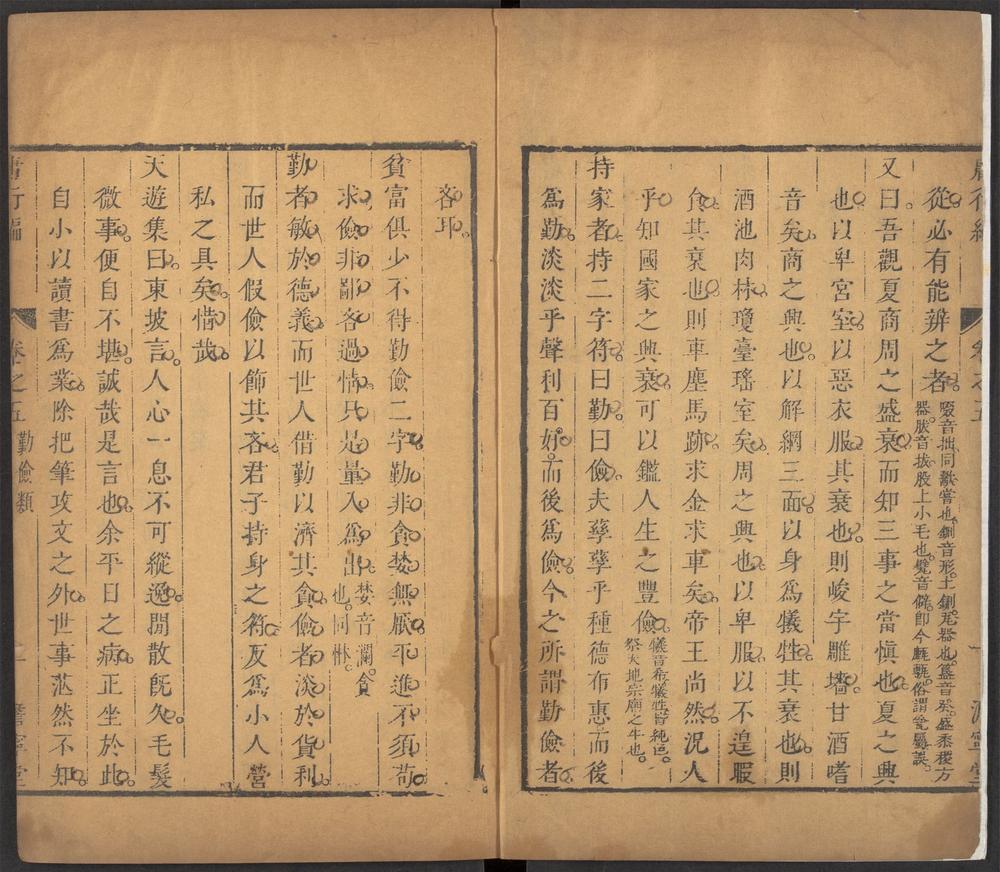 從必有能辨之者
又曰吾觀夏商周之盛衰而知三事之當慎也夏之興
也以卑宮室以惡衣服其衰也則峻宇雕墻甘酒嗜
音矣商之興也以解網三面以身爲犧牲其衰也則
酒池肉林瓊臺瑤室矣周之興也以卑服以不遑暇
食其衰也則車塵馬跡求金求車矣帝王尚然況人
乎知國家之興衰可以鑑人生之豐儉犧音希犧牲皆純色祭天地宗廟之牛也
持家者持二字符曰勤曰儉夫孳孳乎種德布惠而後
爲勤淡淡乎聲利百好而後爲儉今之所謂勤儉者
吝耳
貧富俱少不得勤儉二字勤非貪婪無厭平進不須苟
求儉非鄙吝過情只是量入爲出婪音瀾貪也同惏
勤者敏於德義而世人借勤以濟其貪儉者淡於貨利
而世人假儉以飾其吝君子持身之符反爲小人營
私之具矣惜哉
天遊集曰東坡言人心一息不可縱逸閒散旣久毛髮
微事便自不堪誠哉是言也余平日之病正坐於此
自小以讀書爲業除把筆攻文之外世事茫然不知
卷之五 勤儉類